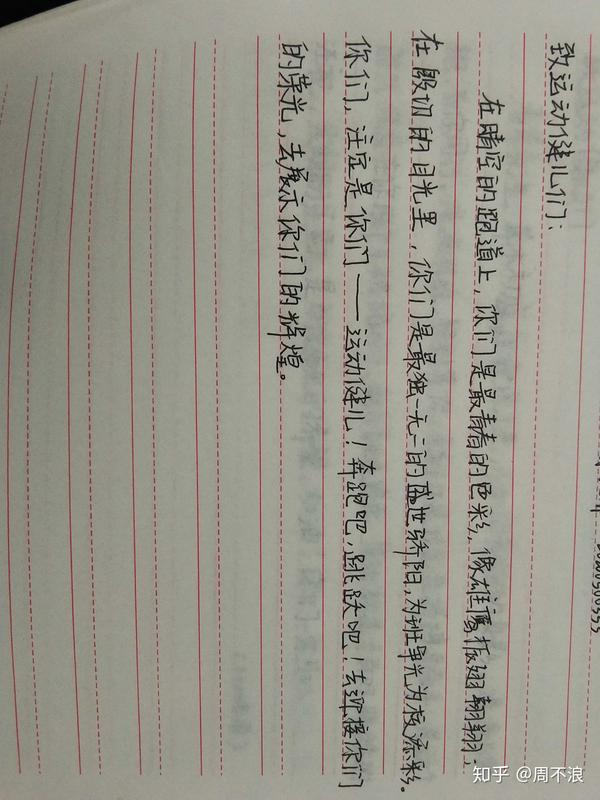 致运动健儿们：
在晴空的跑道上，你们是最青春的色彩，像雄鹰振翅翱翔；
在殷切的目光里，你们是最独一无二的盛世骄阳，为班争光为校添彩。
你们，注定是你们——运动健儿！奔跑吧，跳跃吧！去迎接你们
的荣光，去展示你们的辉煌。
知乎 @周不浪